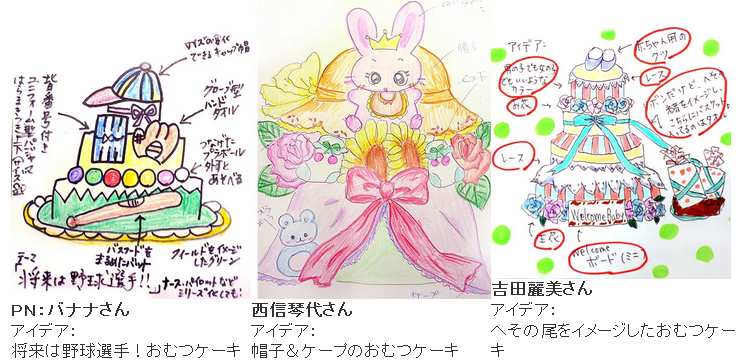 サイズの変化
できるキャップ帽
グローブ型
ハンド
タオル
つなげた
プラボール
外すと
あそべる
背番号付き
ユニフォーム型
バスタオルを
まるめたバット
フィールドをイメージ
したグリーン
テーマ
将来は野球選手!!
ナース、パイロットなど
シリーズ化しても!
PN:バナナさん
アイデア:
将来は野球選手！おむつケーキ
帽子
西信琴代さん
アイデア:
帽子＆ケープのおむつケーキ
アイデア:
男の子でも女の子
でもいいような
カラー
赤ちゃん用の
クツ
レース
お花
レース
生花
Welcome Baby
Welcome
ボード(ミニ)
リボンだけど、へその
緒をイメージし、
吉田麗美さん
アイデア:
へその尾をイメージしたおむつケー
キ